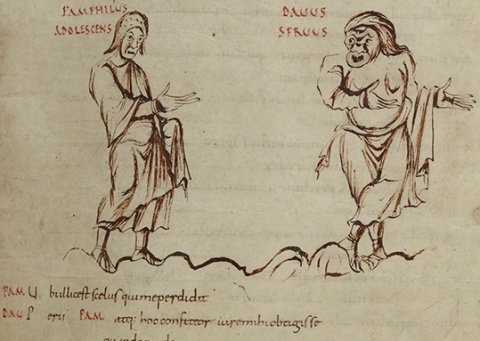 PAMPHILUS
ADOLESCENS
DAUUS
SERUUS
PAM Ubi illic est scelus qui me perdidit
DAU Perii PAM atq hoc confiteor iure mihi obtigisse